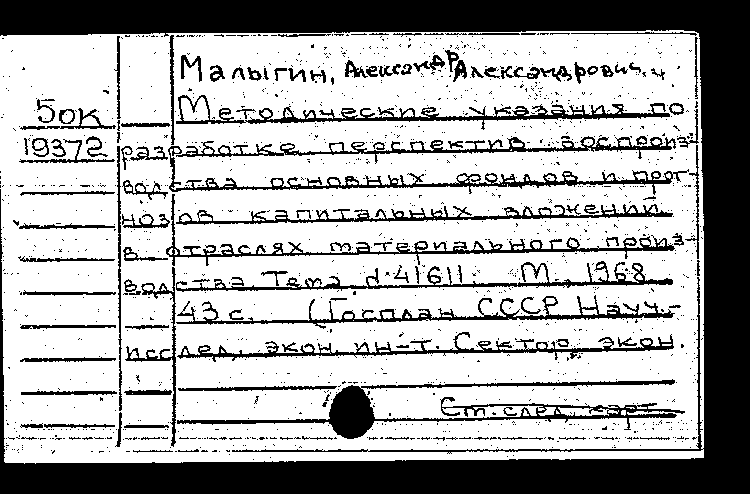 Малыгин, Александр Александрович. и
50К Методические указания по
19372 разработке перспектив воспроиз-
водства основных фондов и прог-
нозов капитальных вложений
в отраслях материального произ-
водства. Тема d·41611. М., 1968
43 с. (Госплан СССР Науч.-
исслед. экон. ин-т. Сектор экон.
См. след. карт.